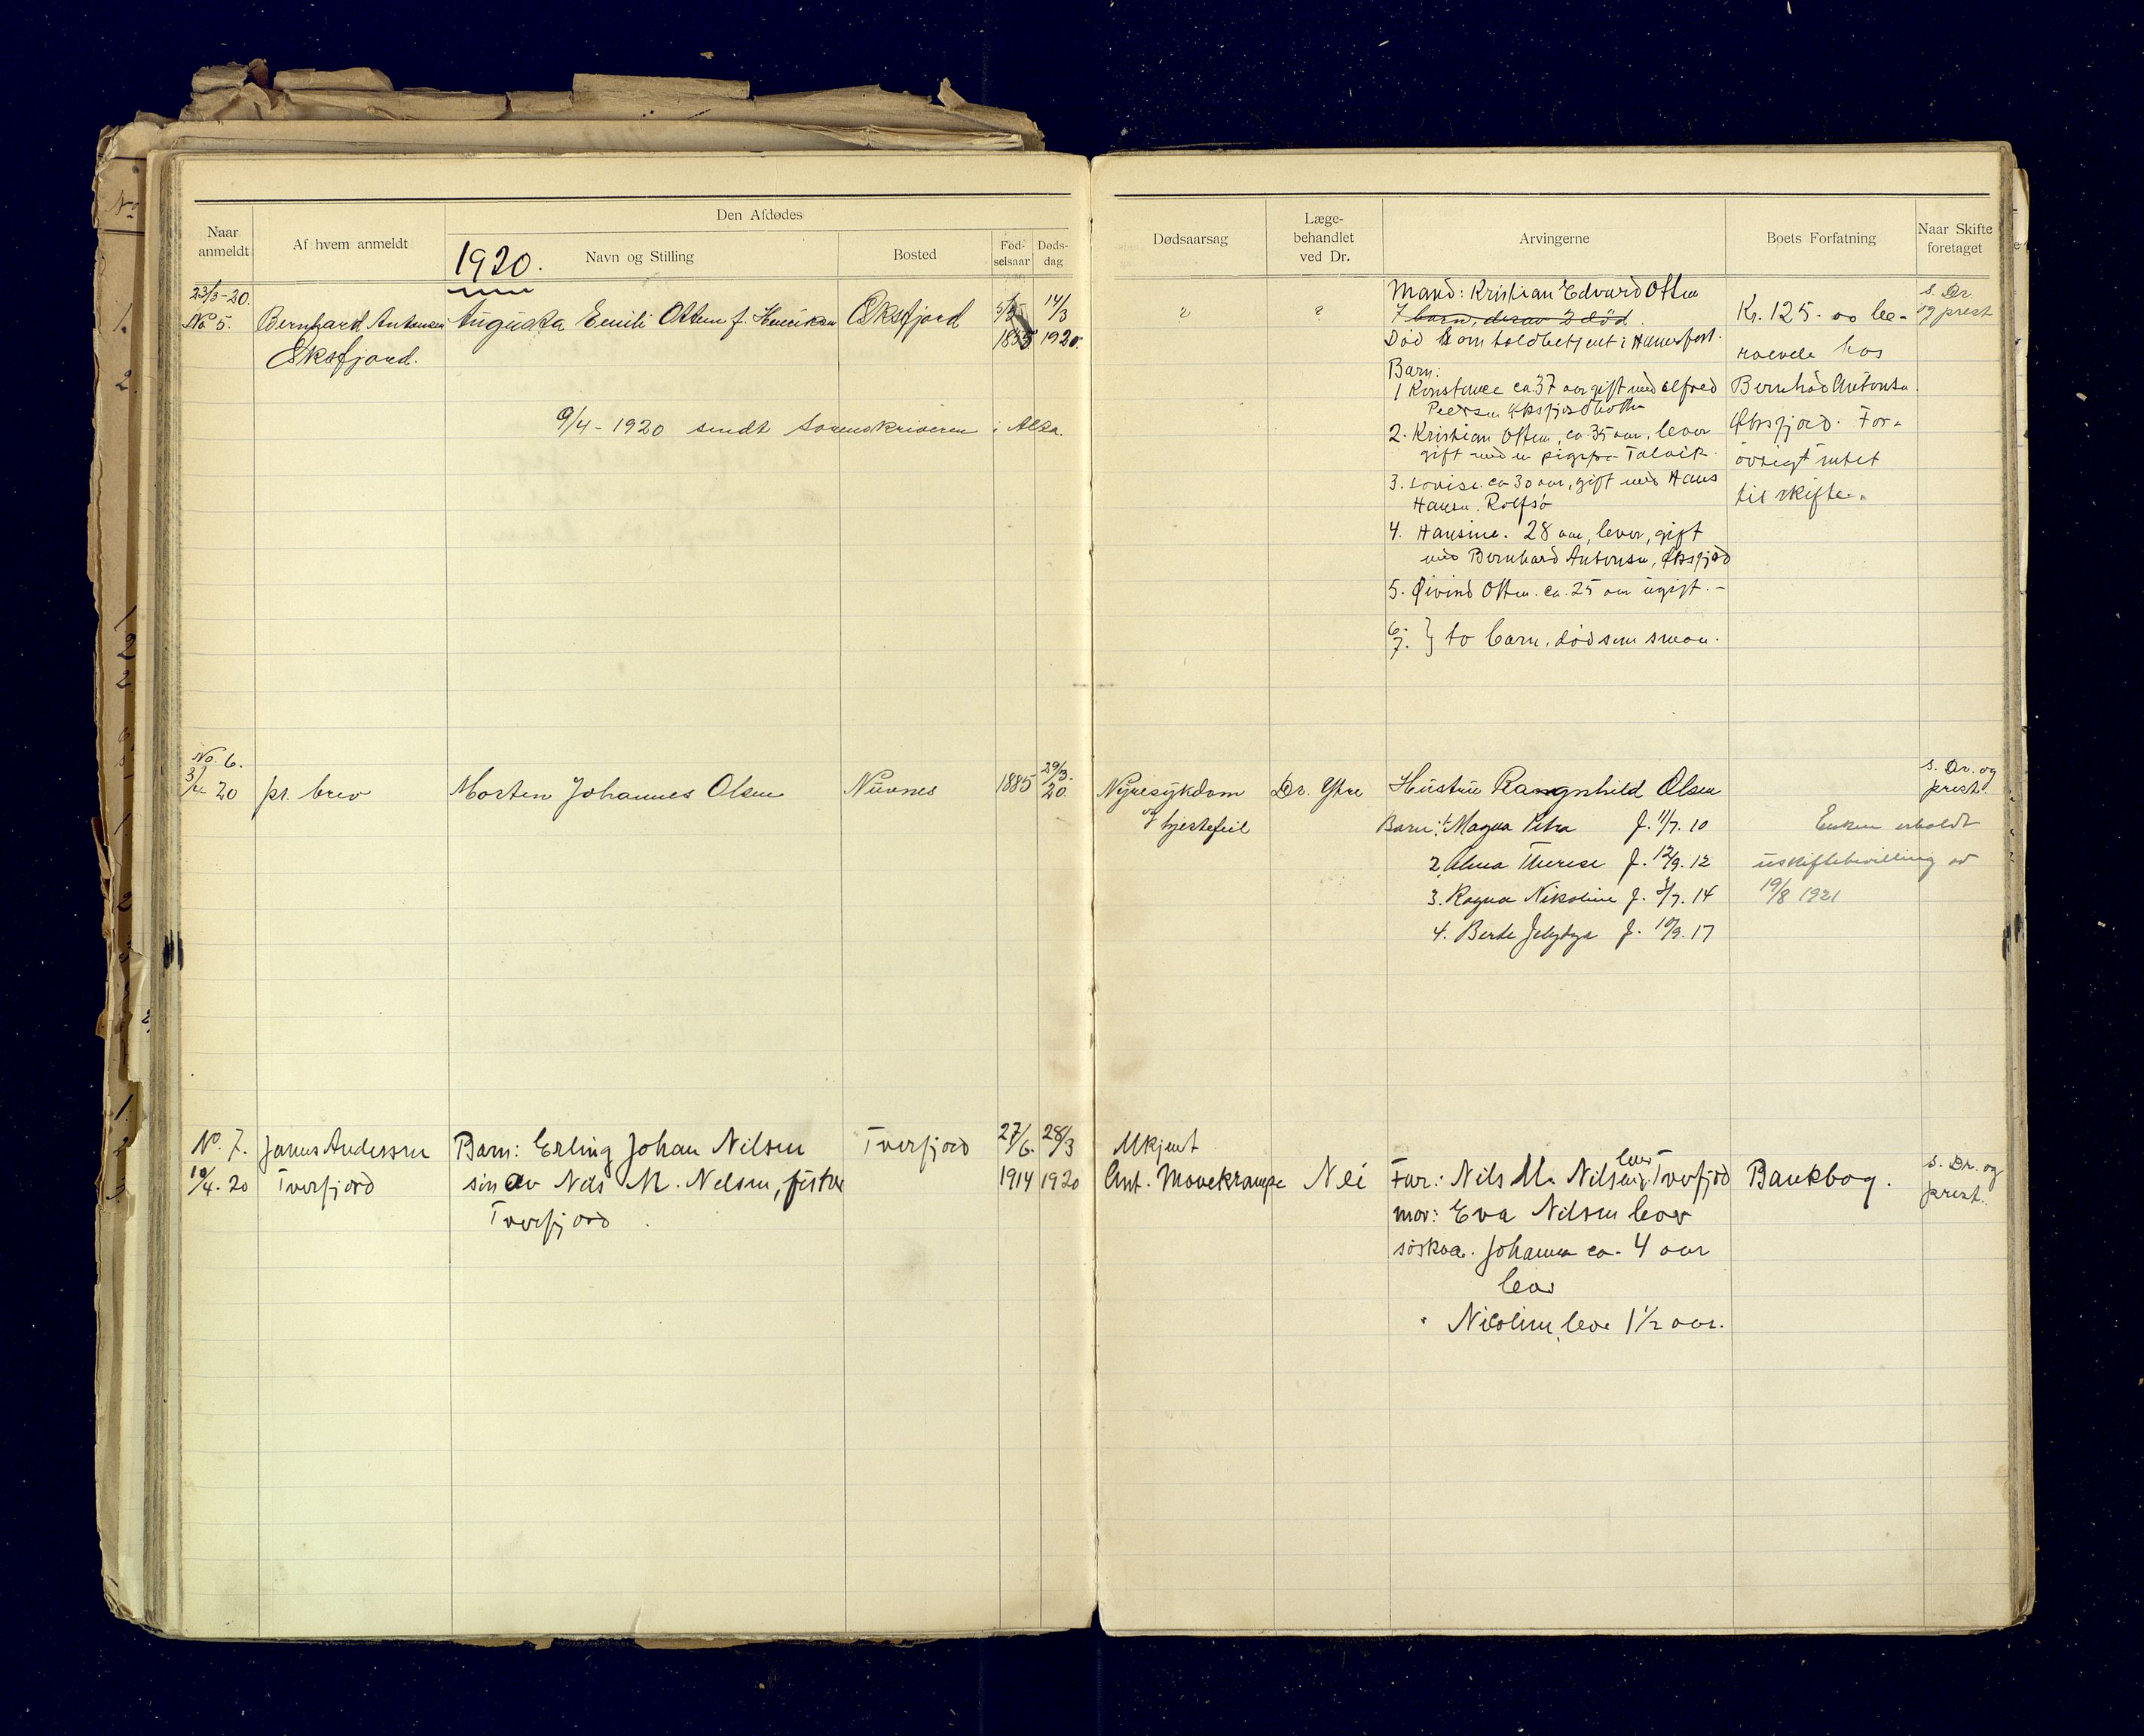 Naar anmeldt
Af hvem anmeldt
Den Afdødes
1920.
Navn og Stilling
Bosted
Fødselsaar
Dødsdag
Dødsaarsag
Lægebehandlet ved Dr.
Arvingerne
Boets Forfatning
Naar Skifte foretaget
23/3-20.
No 5.
Bernhard Antonsen
Øksfjord.
Augusta Emili Olsen f. Henriksen
Øksfjord
14/3
1920.
9/4 - 1920 sendt sorenskriveren i Alta.
?
?
Mand: Kristian Edvard Olsen
7 barn, derav 2 død.
Død som toldbetjent i Hammerfest.
Barn:
1 Konstance ca 37 aar gift med Alfred
2. Kristian Olsen, ca 35 aar, lever
gift med en pige fra Talvik.
3. Lovise ca 30 aar, gift med Hans
Hansen. Rolfsø
4. Hansine. 28 aar, lever, gift
med Bernhard Antonsen, Øksfjord
5. Øivind Olsen. ca. 25 aar ugift. -
6. 7. } to barn, død som smaa.
Kr. 125.00 be-
roende hos
Bernhard Antonsen.
Øksfjord. For-
øvrigt intet
til skifte.
s. Dr.
og prest
No. 6.
3/4 20
pr. brev
Morten Johannes Olsen
Nuvnes
1885
29/3.
20.
Nyresykdom
og hjertefeil
Dr. Ytre
Hustru Rangnhild Olsen
Barn: 1. Magna Petra f. 11/7. 10
2. Alma Therese f. 12/9. 12
3. Ragna Nikoline f. 3/7. 14
4. Berte f. 10/9. 17
Enken erholdt
uskiftebevilling av
19/8 1921
s. Dr. og
prest.
No. 7.
10/4. 20
Janus Anderssen
Tverfjord
Barn: Erling Johan Nilsen
søn av Nils M. Nilsen, fisker
Tverfjord.
Tverfjord
27/6. 28/3
1914 1920
Ukjent
Ant. Mavekrampe
Nei
Far: Nils M. Nilsen, Tverfjord
lever
mor: Eva Nilsen lever
søsken. Johanna ca. 4 aar
lever
" Nicoline, lever 1 1/2 aar.
Bankbog.
s. Dr. og
prest.